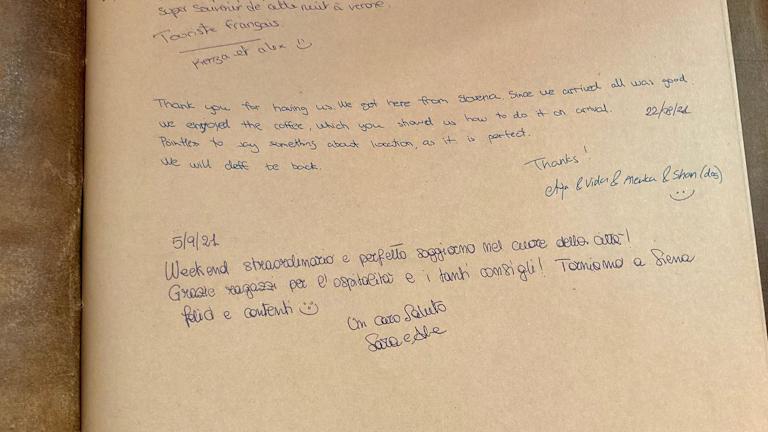 super souvenir de cette nuit à verone.
Touriste français
Kenza et alex
Thank you for having us. We got here from Slovenia. Since we arrived all was good
we enjoyed the coffee, which you showed us how to do it on arrival. 22/08/21
Pointless to say something about location, as it is perfect.
We will deff be back.
Thanks!
& Vida & Alenka & Shan (dog)
5/9/21
Weekend straordinario e perfetto soggiorno nel cuore della città!
Grazie ragazzi per l'ospitalità e i tanti consigli! Torniamo a Siena
felici e contenti
Un caro Saluto
Sara e Ale